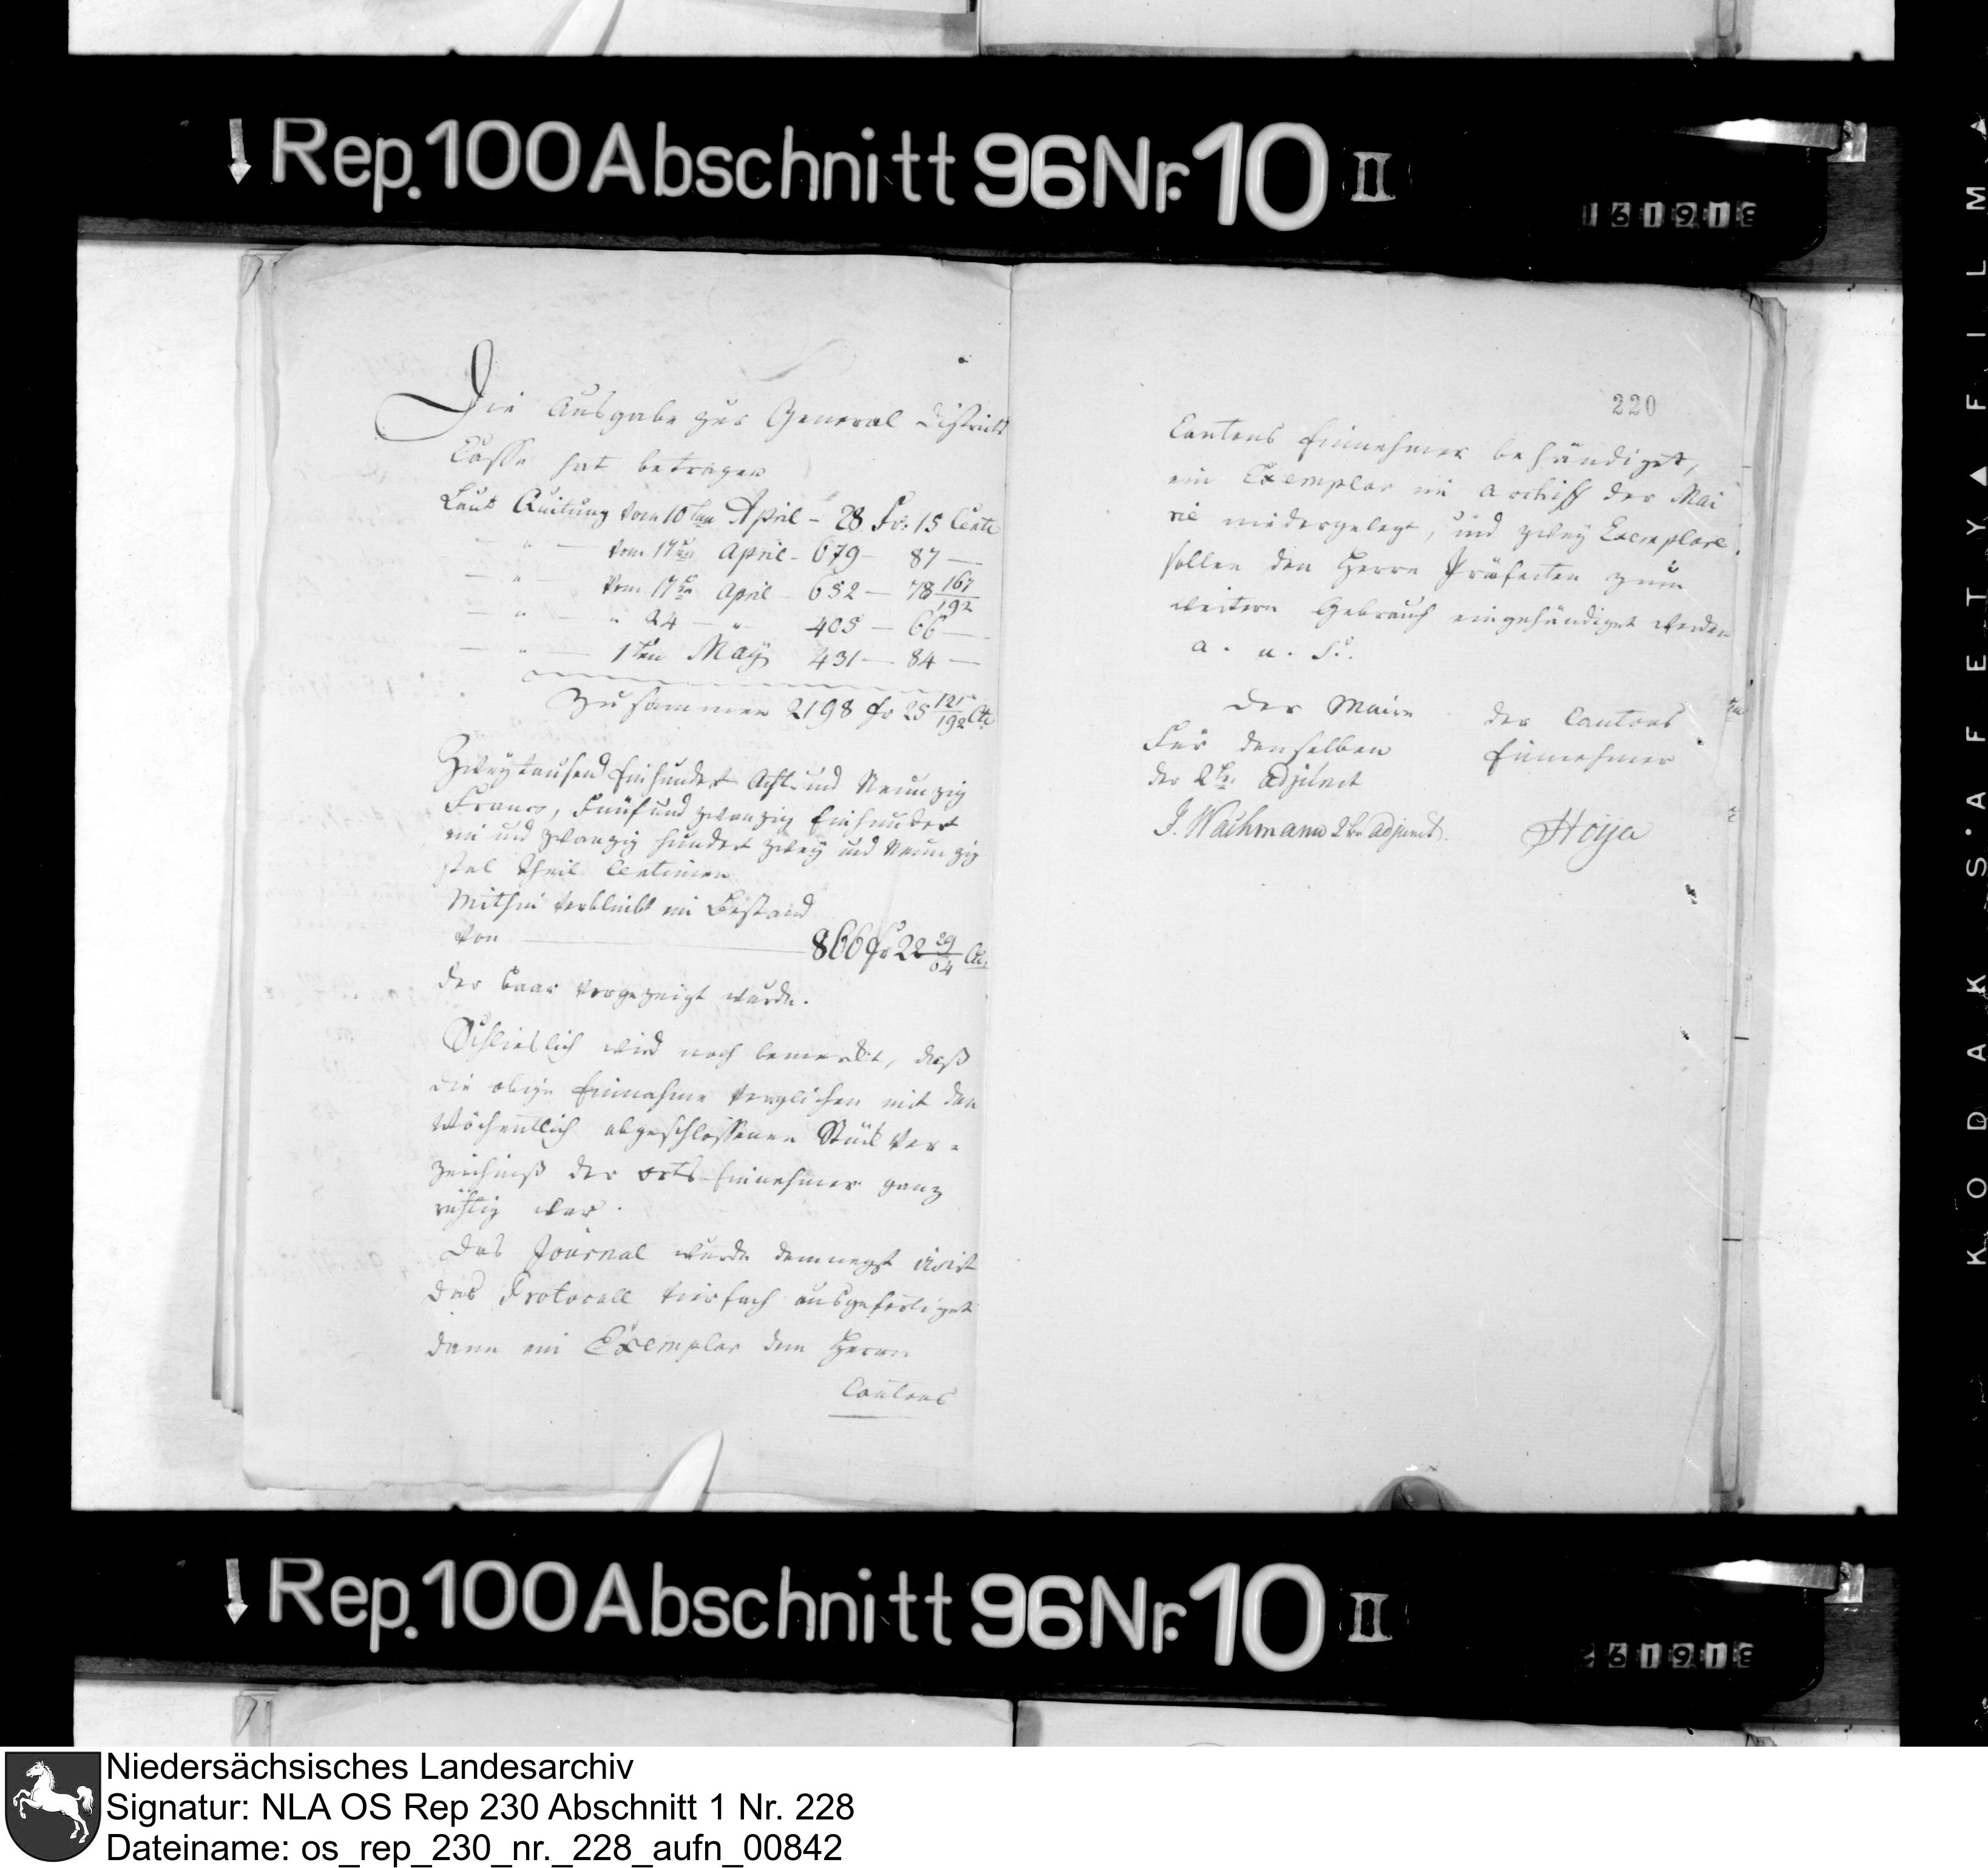 Rep. 100 Abschnitt 96 Nr. 10 II
161918
Die Ausgabe zur General Districts
Casse hat betragen
Laut Quitung vom 10ten April - 28 Fr. 15 Cent
— " — vom 17ten April - 679 - 87 —
— " — vom 17ten April - 652 — 78 167/192
— " — " 24 — " — 405 — 66 —
— " — 1ten May 431 — 84 —
Zusammen 2198 fr 25 121/192 Ct
Zweytausend Einhundert Acht und Neunzig
Francs, Fünf und zwanzig Einhundert
ein und zwanzig hundert zwey und Neunzig
stel Theil Centimen
Mithin verbleibt ein Bestand
von — 866 fr 22 29/64 Ct.
der baar vorgezeigt wurde.
Schlieslich wird noch bemerkt, daß
die obige Einnahme verglichen mit den
Wöchentlich abgeschlossenen Stück Ver-
zeichniß der Orts Einnehmer ganz
richtig war.
Das Journal wurde demnegst
das Protocoll vierfach ausgefertiget
dann ein Exemplar dem Herrn
Cantons
220
Cantons Einnehmer behändiget,
ein Exemplar im Archiff der Mai
rie niedergelegt, und zwey Exemplare
sollen den Herrn Präfecten zum
weitern Gebrauch eingehändiget werden
a. u. s.
Der Maire
Für denselben
der 2te Adjunct
J. Wachmann 2ter Adjunct.
der Cantons
Einnehmer
Hoya
KODAK S.AFETY▲FILM▲
Rep. 100 Abschnitt 96 Nr. 10 II
61918
Niedersächsisches Landesarchiv
Signatur: NLA OS Rep 230 Abschnitt 1 Nr. 228
Dateiname: os_rep_230_nr._228_aufn_00842